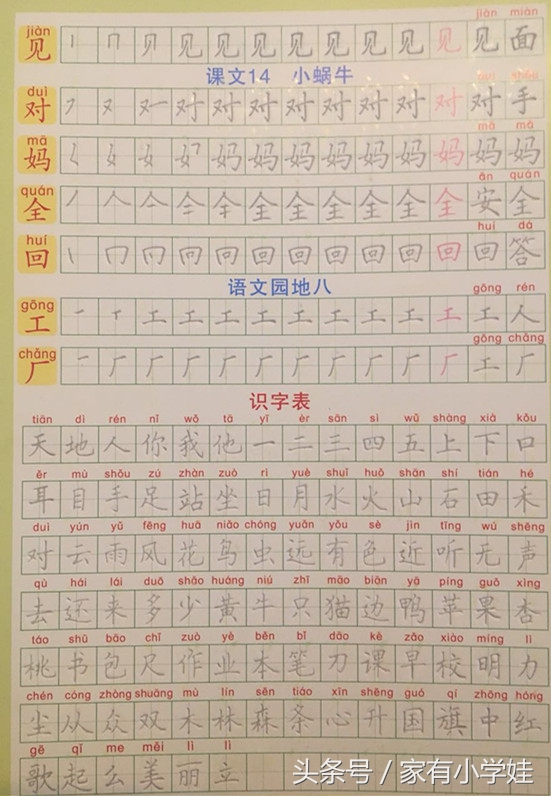 jiàn miàn
jiàn
见 丨 冂 贝 见 见 见 见 见 见 见 见 见 面
课文14 小蜗牛
duì
对 フ 又 对 对 对 对 对 对 对 对 手
mā mā
mā
妈 妈 妈 妈 妈 妈 妈 妈 妈 妈
ān quán
quán
全 丿 人 全 全 全 全 全 全 全 安 全
huí dá
huí
回 丨 冂 回 回 回 回 回 回 回 回 回 答
语文园地八
gōng rén
gōng
工 一 丅 工 工 工 工 工 工 工 工 工 工 人
gōng chǎng
chǎng
厂 一 厂 厂 厂 厂 厂 厂 厂 厂 厂 厂 工 厂
识字表
tiān dì rén nǐ wǒ tā yī èr sān sì wǔ shàng xià kǒu
天 地 人 你 我 他 一 二 三 四 五 上 下 口
ěr mù shǒu zú zhàn zuò rì yuè shuǐ huǒ shān shí tián hé
耳 目 手 足 站 坐 日 月 水 火 山 石 田 禾
duì yún yǔ fēng huā niǎo chóng yuǎn yǒu sè jìn tīng wú shēng
对 云 雨 风 花 鸟 虫 远 有 色 近 听 无 声
qù hái lái duō shǎo huáng niú zhī māo biān yā píng guǒ xìng
去 还 来 多 少 黄 牛 只 猫 边 鸭 苹 果 杏
táo shū bāo chǐ zuò yè běn bǐ dāo kè zǎo xiào míng lì
桃 书 包 尺 作 业 本 笔 刀 课 早 校 明 力
chén cóng zhòng shuāng mù lín sēn tiáo xīn shēng guó qí zhōng hóng
尘 从 众 双 木 林 森 条 心 升 国 旗 中 红
gē qǐ me měi lì lì
歌 起 么 美 丽 立
头条号 / 家有小学娃